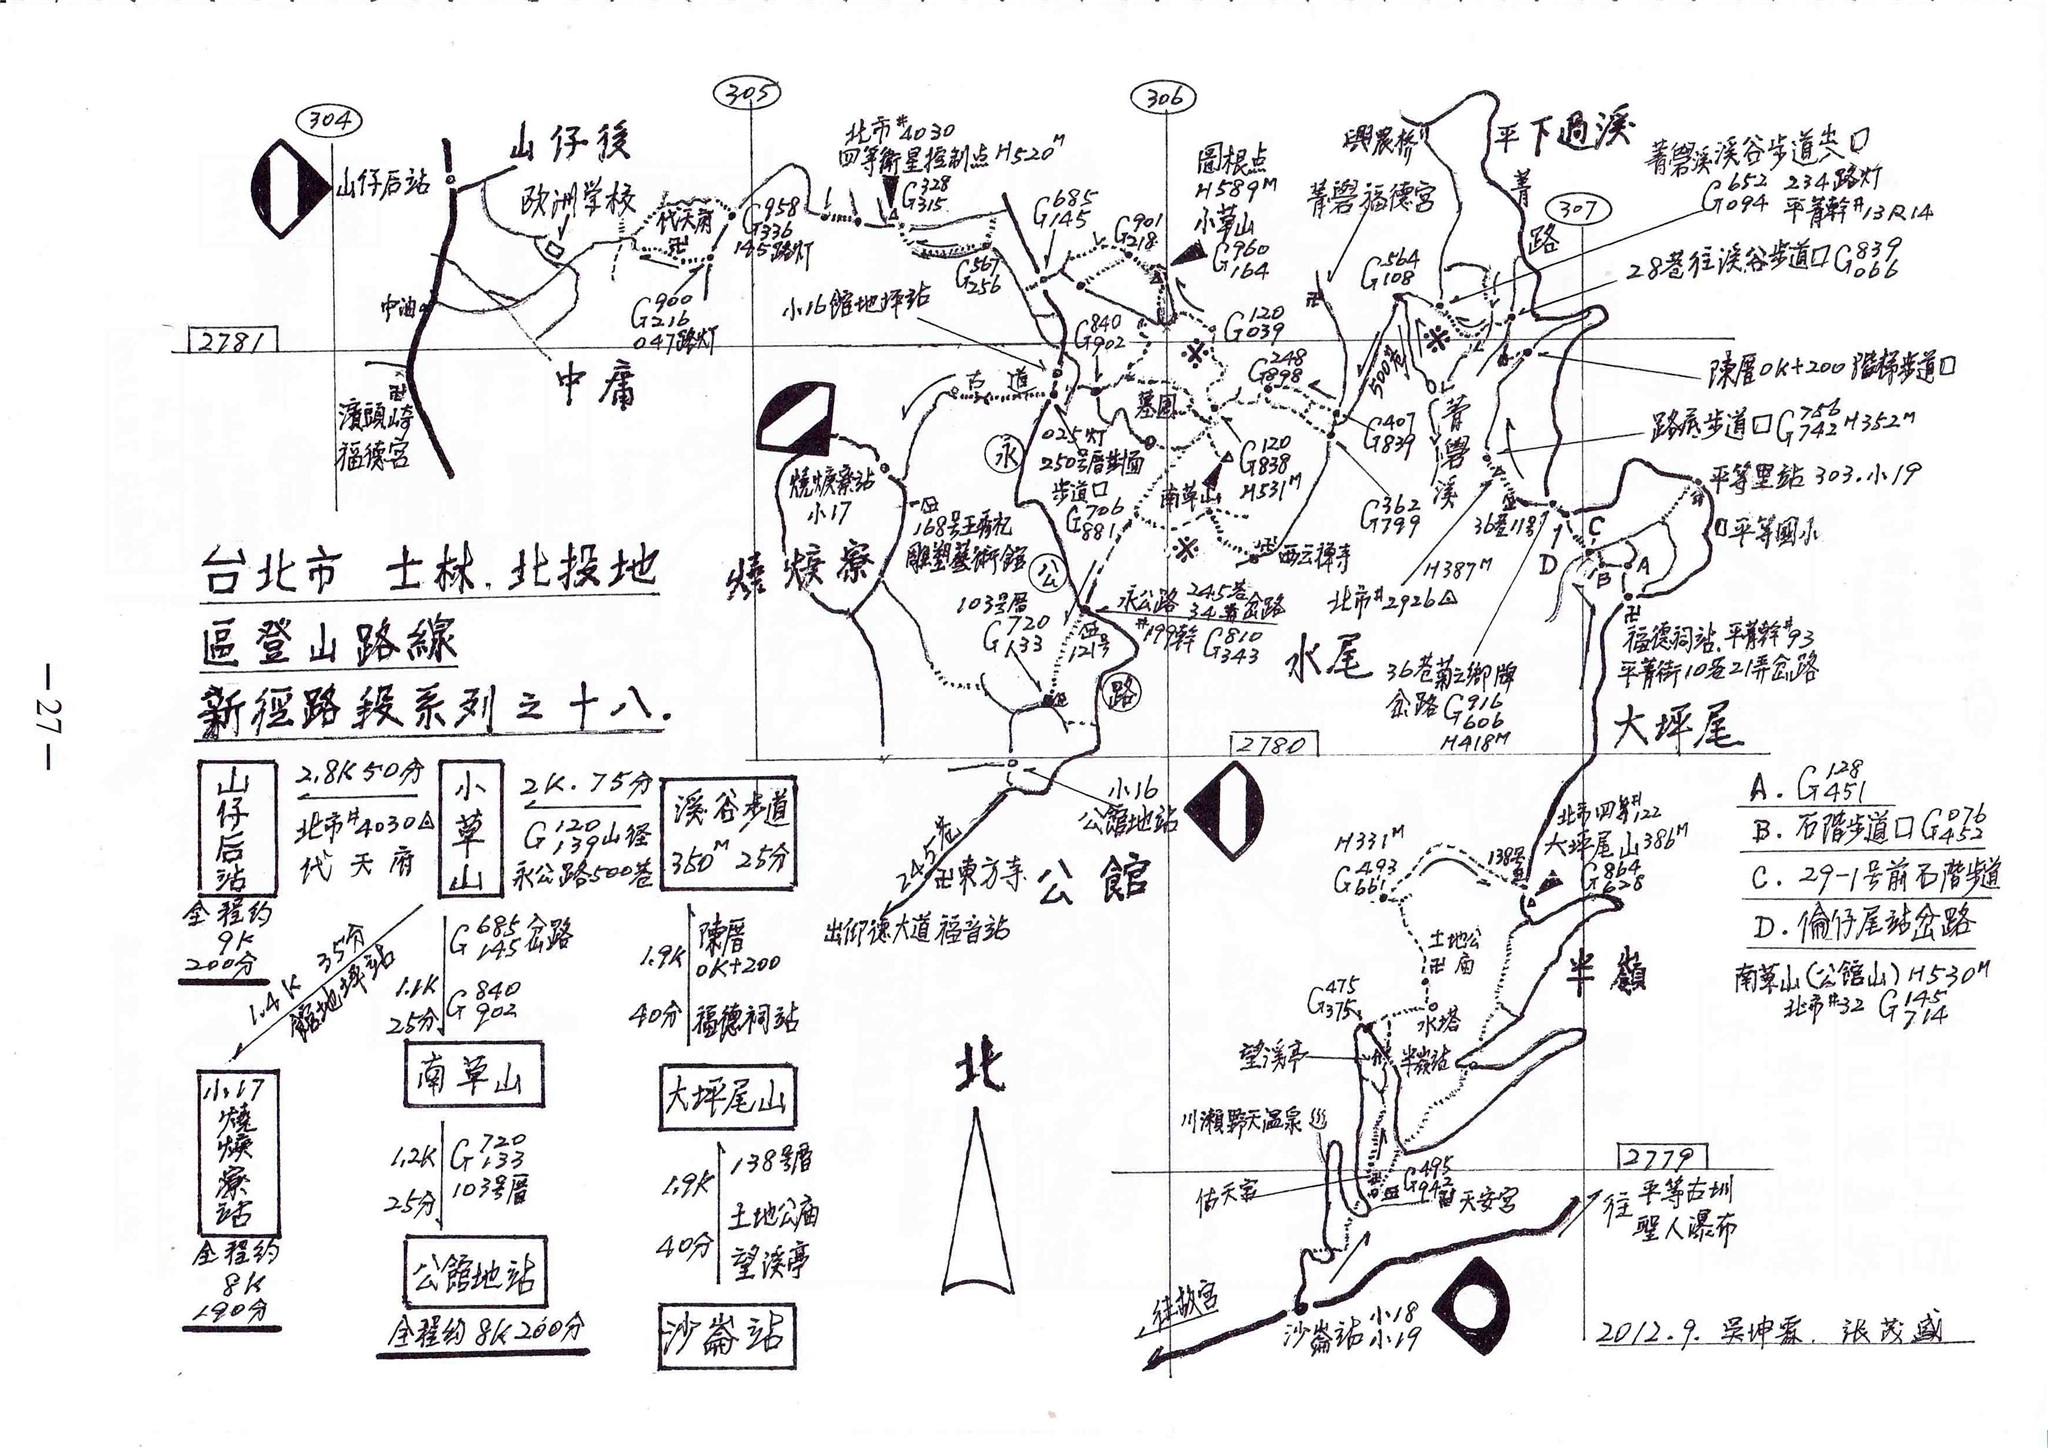 304
305
306
307
2781
2780
2779
山仔后站
山仔後
欧洲学校
代天府
中油
中庸
濆頭崎
福德宮
G958
336
145路灯
G900
216
047路灯
北市#4030
四等衛星控制点H520M
G328
315
G567
256
G685
145
G901
218
圖根点
H589M
小草山
G960
164
小16館地坪站
G840
902
G120
039
G248
898
興農桥
菁礐福德宮
平下過溪
菁
路
菁礐溪溪谷步道出入口
G652
094
234路灯
平菁幹#13R14
28巷往溪谷步道口G839
066
G564
108
500巷
陳厝0K+200階梯步道口
路底步道口G756
742 H352M
平等里站 303.小19
平等國小
古道
墓園
025灯
250号厝对面
步道口
G706
881
南草山
G120
838
H531M
G407
839
G362
799
菁
礐
溪
36巷11号
C
D
B
A
燒焿寮站
小17
燒焿寮
168号王秀杞
雕塑藝術館
永
公
路
103号厝
G720
133
121号
永公路245巷
34弄岔路
#199幹 G810
343
西云禅寺
H387M
北市#2926
水尾
36巷菊之鄉牌
岔路G916
606
H418M
福德祠站.平菁幹#93
平菁街10巷21弄岔路
大坪尾
台北市 士林.北投地
區登山路線
新徑路段系列之十八.
-27-
小16
公館地站
公館
245巷
卍東方寺
出仰德大道福音站
北市四等#122
大坪尾山386M
G864
628
138号
H331M
G493
661
土地公
庙
水塔
半嶺
半嶺站
G475
375
望溪亭
川瀨野天温泉
佑天宮
G495
942
天安宮
往 平等古圳
聖人瀑布
往故宮
沙崙站 小18
小19
A. G128
451
B. 石階步道口G076
452
C. 29-1号前石階步道
D. 倫仔尾站岔路
南草山(公館山)H530M
北市#32 G145
714
山仔后站
全程約
9K
200分
2.8K 50分
北市#4030
代天府
小草山
2K.75分
G120
139山徑
永公路500巷
溪谷步道
350M 25分
1.4K 35分
館地坪站
1.1K
25分
G685
145岔路
G840
902
1.9K
40分
陳厝
0K+200
福德祠站
小17燒焿寮站
全程約
8K
190分
南草山
1.2K
25分
G720
133
103号厝
公館地站
全程約8K 200分
大坪尾山
1.9K
40分
138号厝
土地公庙
望溪亭
沙崙站
北
2012.9. 吳坤霖. 張茂盛